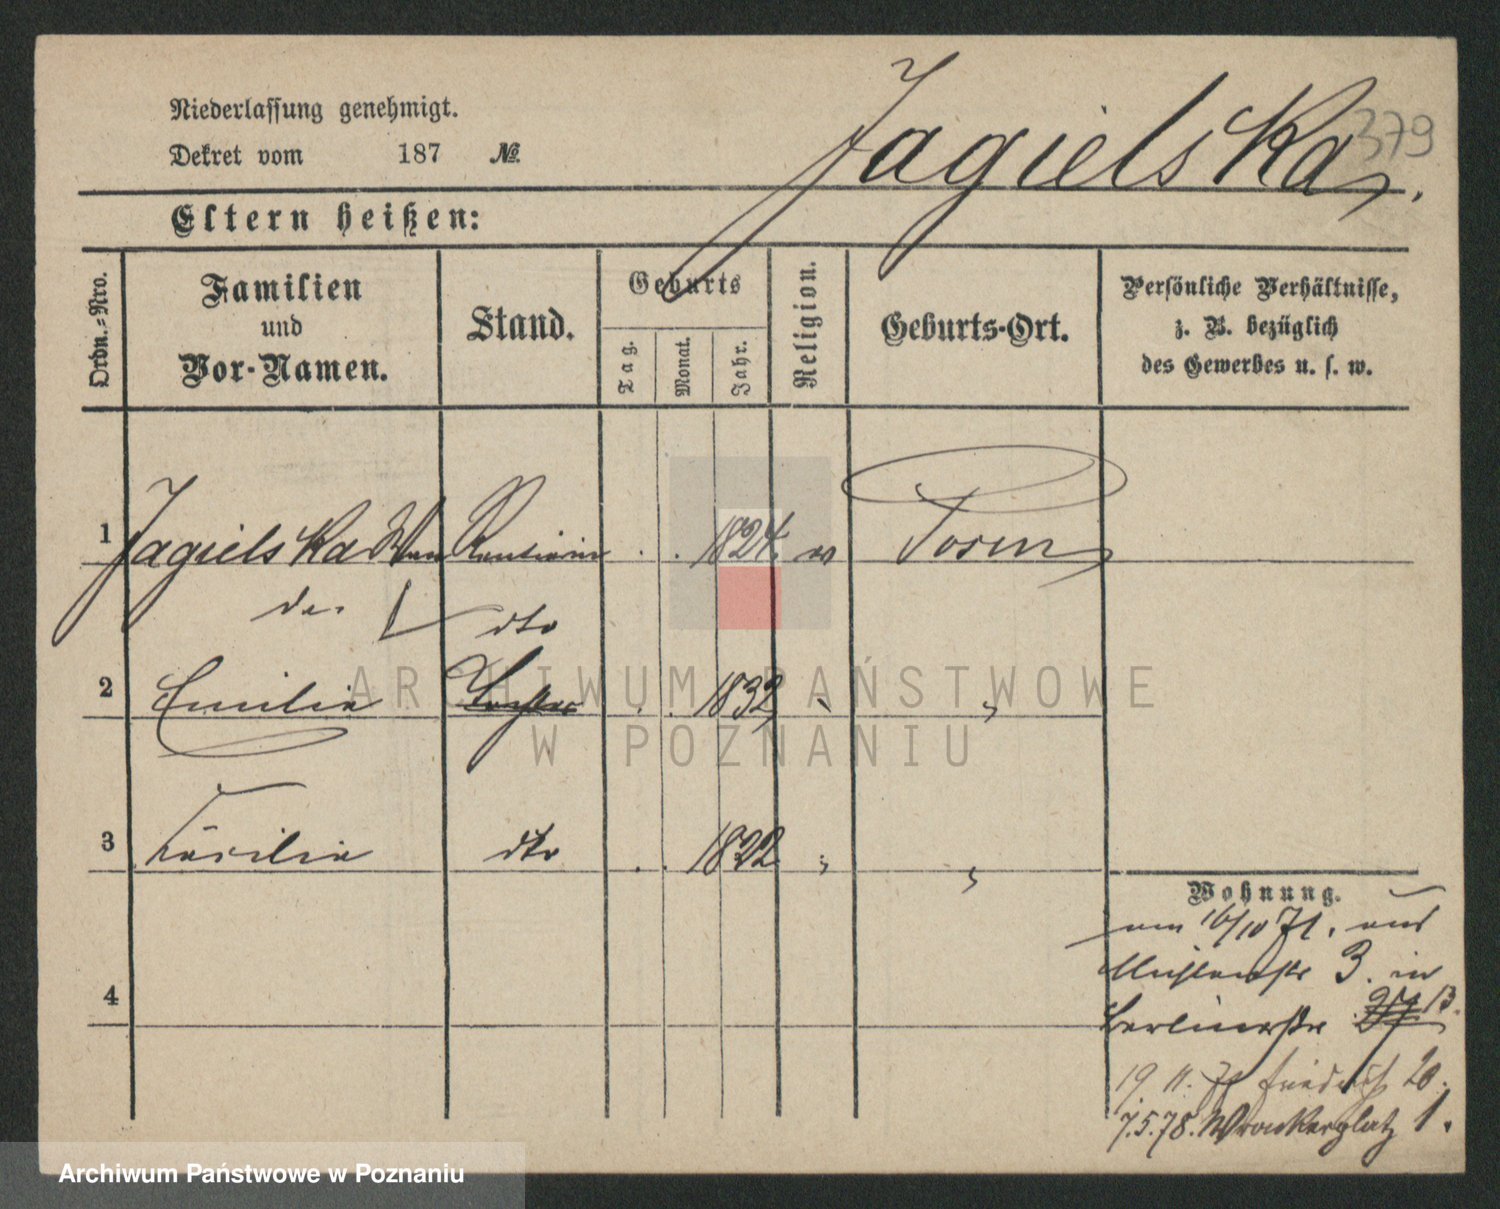 379
Niederlassung genehmigt.
Jagielska.
Dekret vom 187 №
Eltern heißen:
Ordn.=Nro.
Familien
und
Vor-Namen.
Stand.
Geburts
Tag.
Monat.
Jahr.
Religion.
Geburts-Ort.
Persönliche Verhältnisse,
z. B. bezüglich
des Gewerbes u. s. w.
1 Jagielska Wan Rentierin 1824. Posen
da. dto
2 Emilie 1832
3 Cäcilie dto 1822
4
Wohnung.
am 16/10 71. aus
Mühlenstr 3. in
Berlinerstr 27 13.
19 11. Friedrich 20.
7.5.78. Wronkerplatz 1.
ARCHIWUM PAŃSTWOWE
W POZNANIU
Archiwum Państwowe w Poznaniu